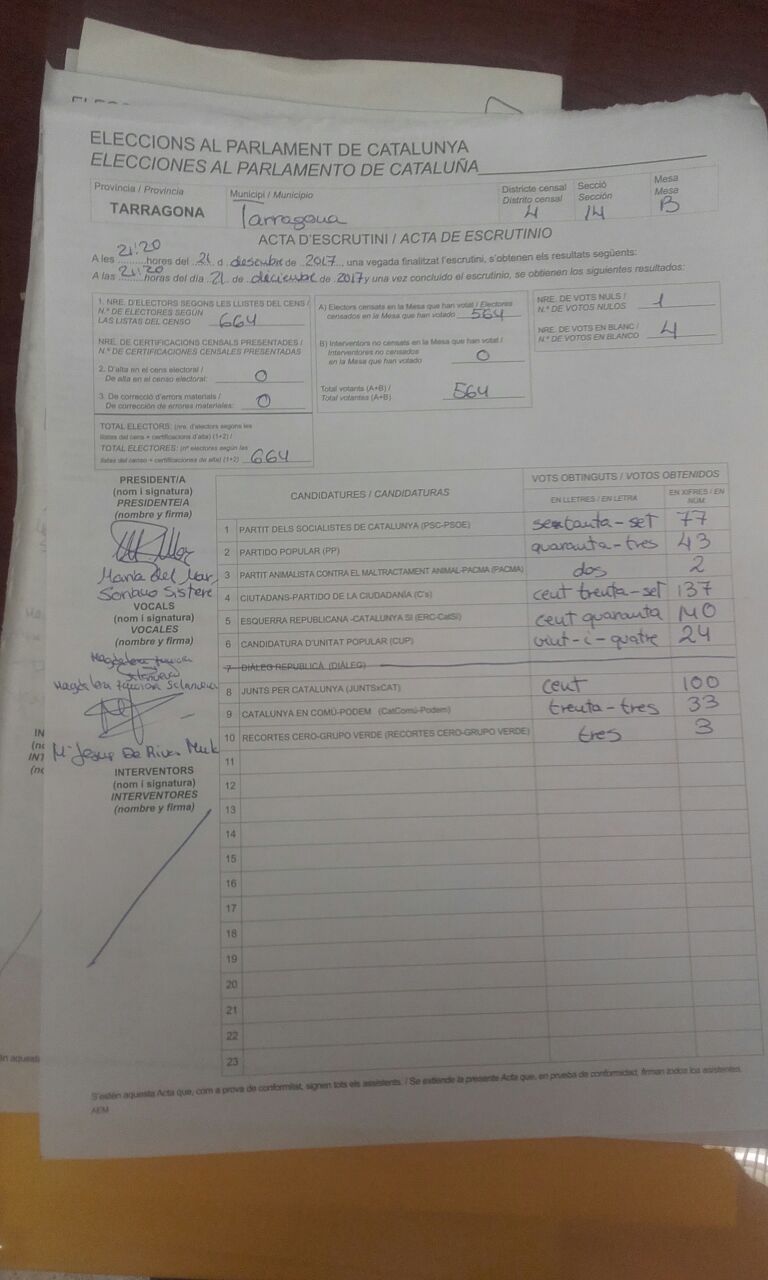 ELECCIONS AL PARLAMENT DE CATALUNYA
ELECCIONES AL PARLAMENTO DE CATALUÑA
Provincia / Provincia
TARRAGONA
Municipi / Municipio
Tarragona
Districte censal
Distrito censal
4
Secció
Sección
14
Mesa
Mesa
B
ACTA D'ESCRUTINI / ACTA DE ESCRUTINIO
A les 21:20 hores del 21 d desembre de 2017, una vegada finalitzat l'escrutini, s'obtenen els resultats següents:
A las 21:20 horas del día 21 de diciembre de 2017 y una vez concluido el escrutinio, se obtienen los siguientes resultados:
1. NRE. D'ELECTORS SEGONS LES LLISTES DEL CENS /
N.º DE ELECTORES SEGÚN
LAS LISTAS DEL CENSO 664
NRE. DE CERTIFICACIONS CENSALS PRESENTADES /
N.º DE CERTIFICACIONES CENSALES PRESENTADAS
2. D'alta en el cens electoral /
De alta en el censo electoral: 0
3. De correcció d'errors materials /
De corrección de errores materiales: 0
TOTAL ELECTORS: (nre. d'electors segons les
llistes del cens + certificacions d'alta) (1+2) /
TOTAL ELECTORES: (nº electores según las
listas del censo + certificaciones de alta) (1+2) 664
A) Electors censats en la Mesa que han votat / Electores
censados en la Mesa que han votado 564
B) Interventors no censats en la Mesa que han votat /
Interventores no censados
en la Mesa que han votado 0
Total votants (A+B) /
Total votantes (A+B) 564
NRE. DE VOTS NULS /
N.º DE VOTOS NULOS 1
NRE. DE VOTS EN BLANC /
N.º DE VOTOS EN BLANCO 4
PRESIDENT/A
(nom i signatura)
PRESIDENTE/A
(nombre y firma)
Maria del Mar
VOCALS
(nom i signatura)
VOCALES
(nombre y firma)
Magdalena
Mª Jesus De Rivas
INTERVENTORS
(nom i signatura)
INTERVENTORES
(nombre y firma)
CANDIDATURES / CANDIDATURAS
VOTS OBTINGUTS / VOTOS OBTENIDOS
EN LLETRES / EN LETRA
EN XIFRES / EN NÚM.
1 PARTIT DELS SOCIALISTES DE CATALUNYA (PSC-PSOE) sextanta-set 77
2 PARTIDO POPULAR (PP) quaranta-tres 43
3 PARTIT ANIMALISTA CONTRA EL MALTRACTAMENT ANIMAL-PACMA (PACMA) dos 2
4 CIUTADANS-PARTIDO DE LA CIUDADANÍA (C's) cent trenta-set 137
5 ESQUERRA REPUBLICANA -CATALUNYA SÍ (ERC-CatSí) cent quaranta 140
6 CANDIDATURA D'UNITAT POPULAR (CUP) vint-i-quatre 24
7 DIÀLEG REPUBLICÀ (DIÀLEG)
8 JUNTS PER CATALUNYA (JUNTSxCAT) cent 100
9 CATALUNYA EN COMÚ-PODEM (CatComú-Podem) trenta-tres 33
10 RECORTES CERO-GRUPO VERDE (RECORTES CERO-GRUPO VERDE) tres 3
11
12
13
14
15
16
17
18
19
20
21
22
23
S'estén aquesta Acta que, com a prova de conformitat, signen tots els assistents. / Se extiende la presente Acta que, en prueba de conformidad, firman todos los asistentes.